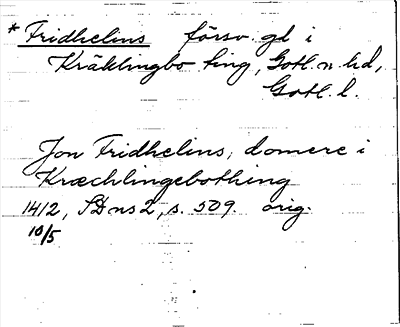 * Fridhelins försv. gl i
Kräklingbo ting, Gotl. n. hd,
Gotl. l.
Jon Fridhelins, domere i
Kræchlingebothing
1412, SD ns 2, s. 509. orig.
10/5